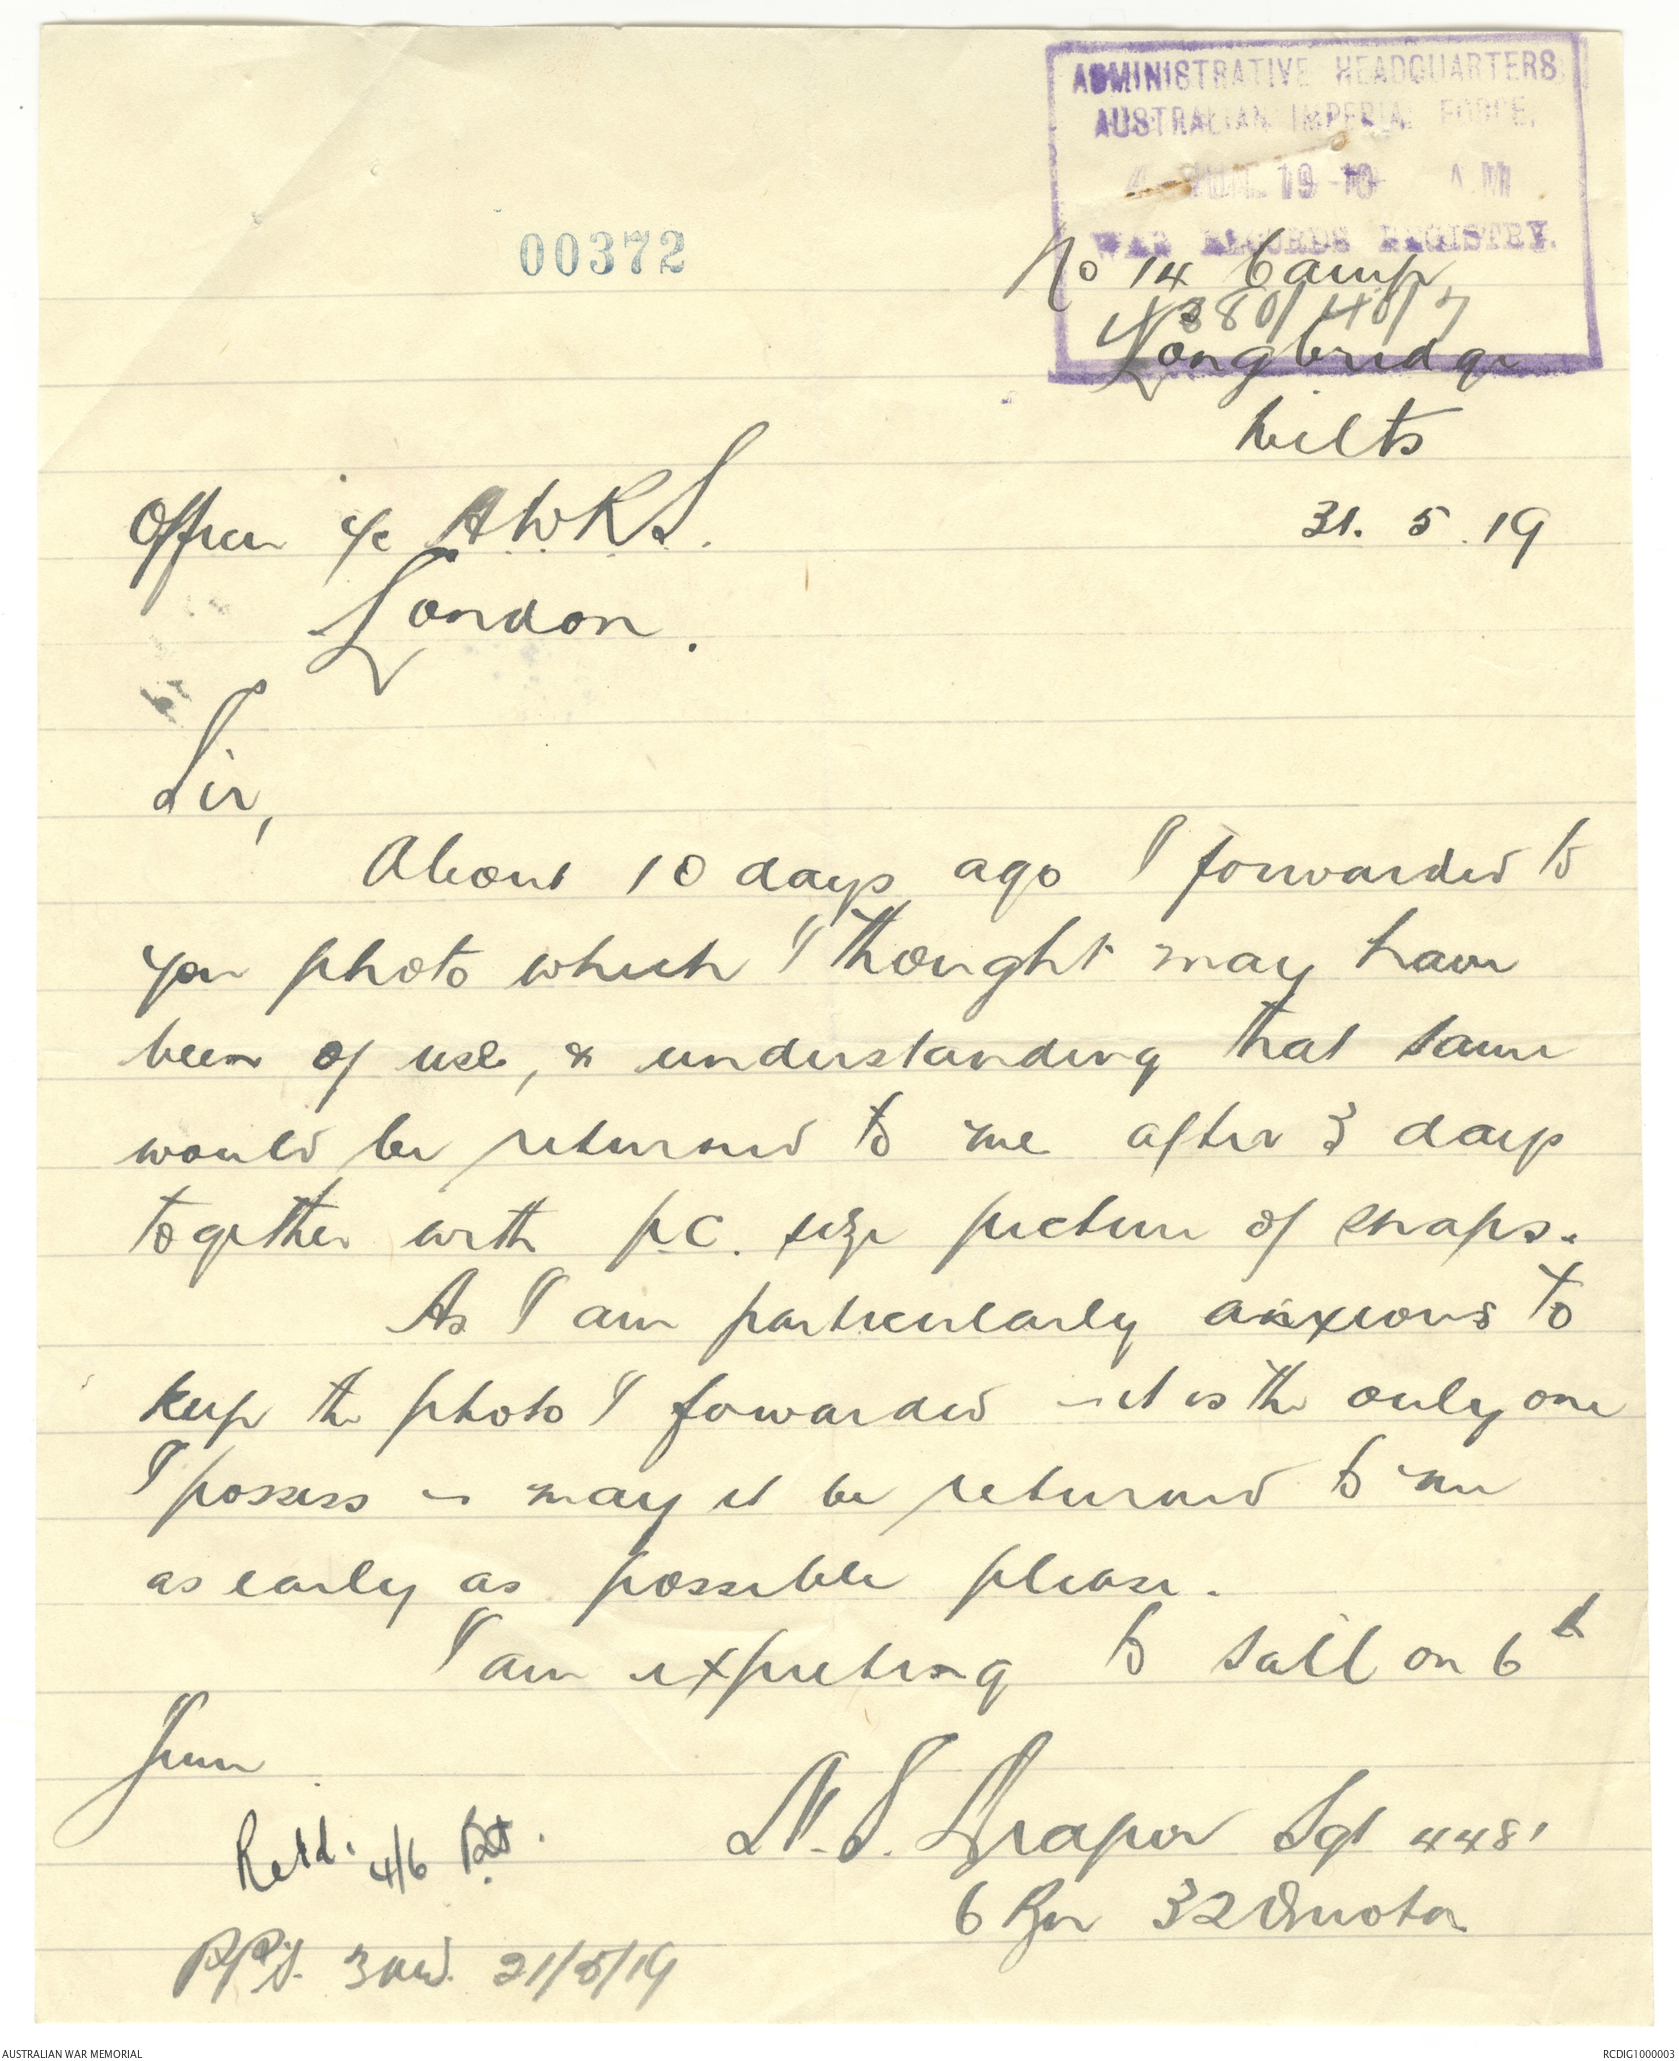 ADMINISTRATIVE HEADQUARTERS
AUSTRALIAN IMPERIAL FORCE.
4 JUN. 19 10 A.M
WAR RECORDS REGISTRY.
00372
No 14 Camp
4380/40/7
Longbridge
Wilts
Officer i/c A.W.R.S.
31. 5. 19
London.
Sir,
About 10 days ago I forwarded to
you photo which I thought may have
been of use, & understanding that same
would be returned to me after 3 days
together with p.c. size picture of snaps.
As I am particularly anxious to
keep the photo I forwarded - it is the only one
I possess - may it be returned to me
as early as possible please.
I am expecting to sail on 6th
June
Retd. 4/6
Draper Sgt 4481
6 Bn 32 Quota
21/5/19
AUSTRALIAN WAR MEMORIAL
RCDIG1000003